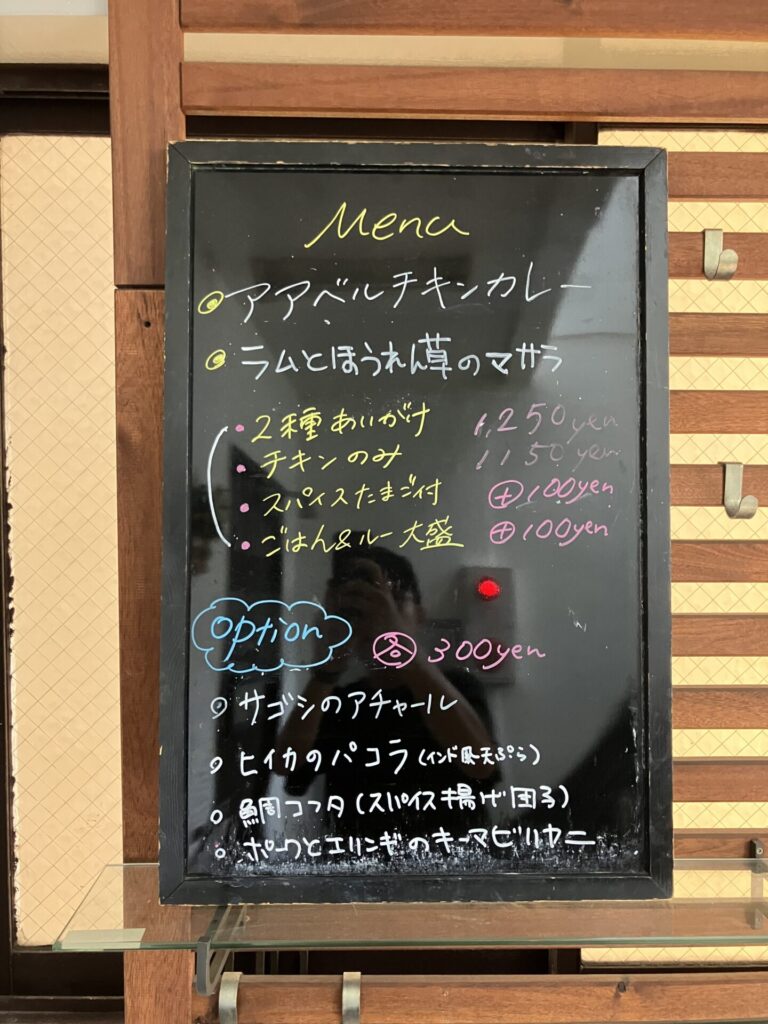 Menu
アアベルチキンカレー
ラムとほうれん草のマサラ
・2種あいがけ 1,250yen
・チキンのみ 1150yen
・スパイスたまご付 ⊕100yen
・ごはん&ルー大盛 ⊕100yen
option 各 300yen
○ サゴシのアチャール
○ ヒイカのパコラ(インド風天ぷら)
○ 鯛コフタ(スパイス揚げ団子)
○ ポークとエリンギのキーマビリヤニ